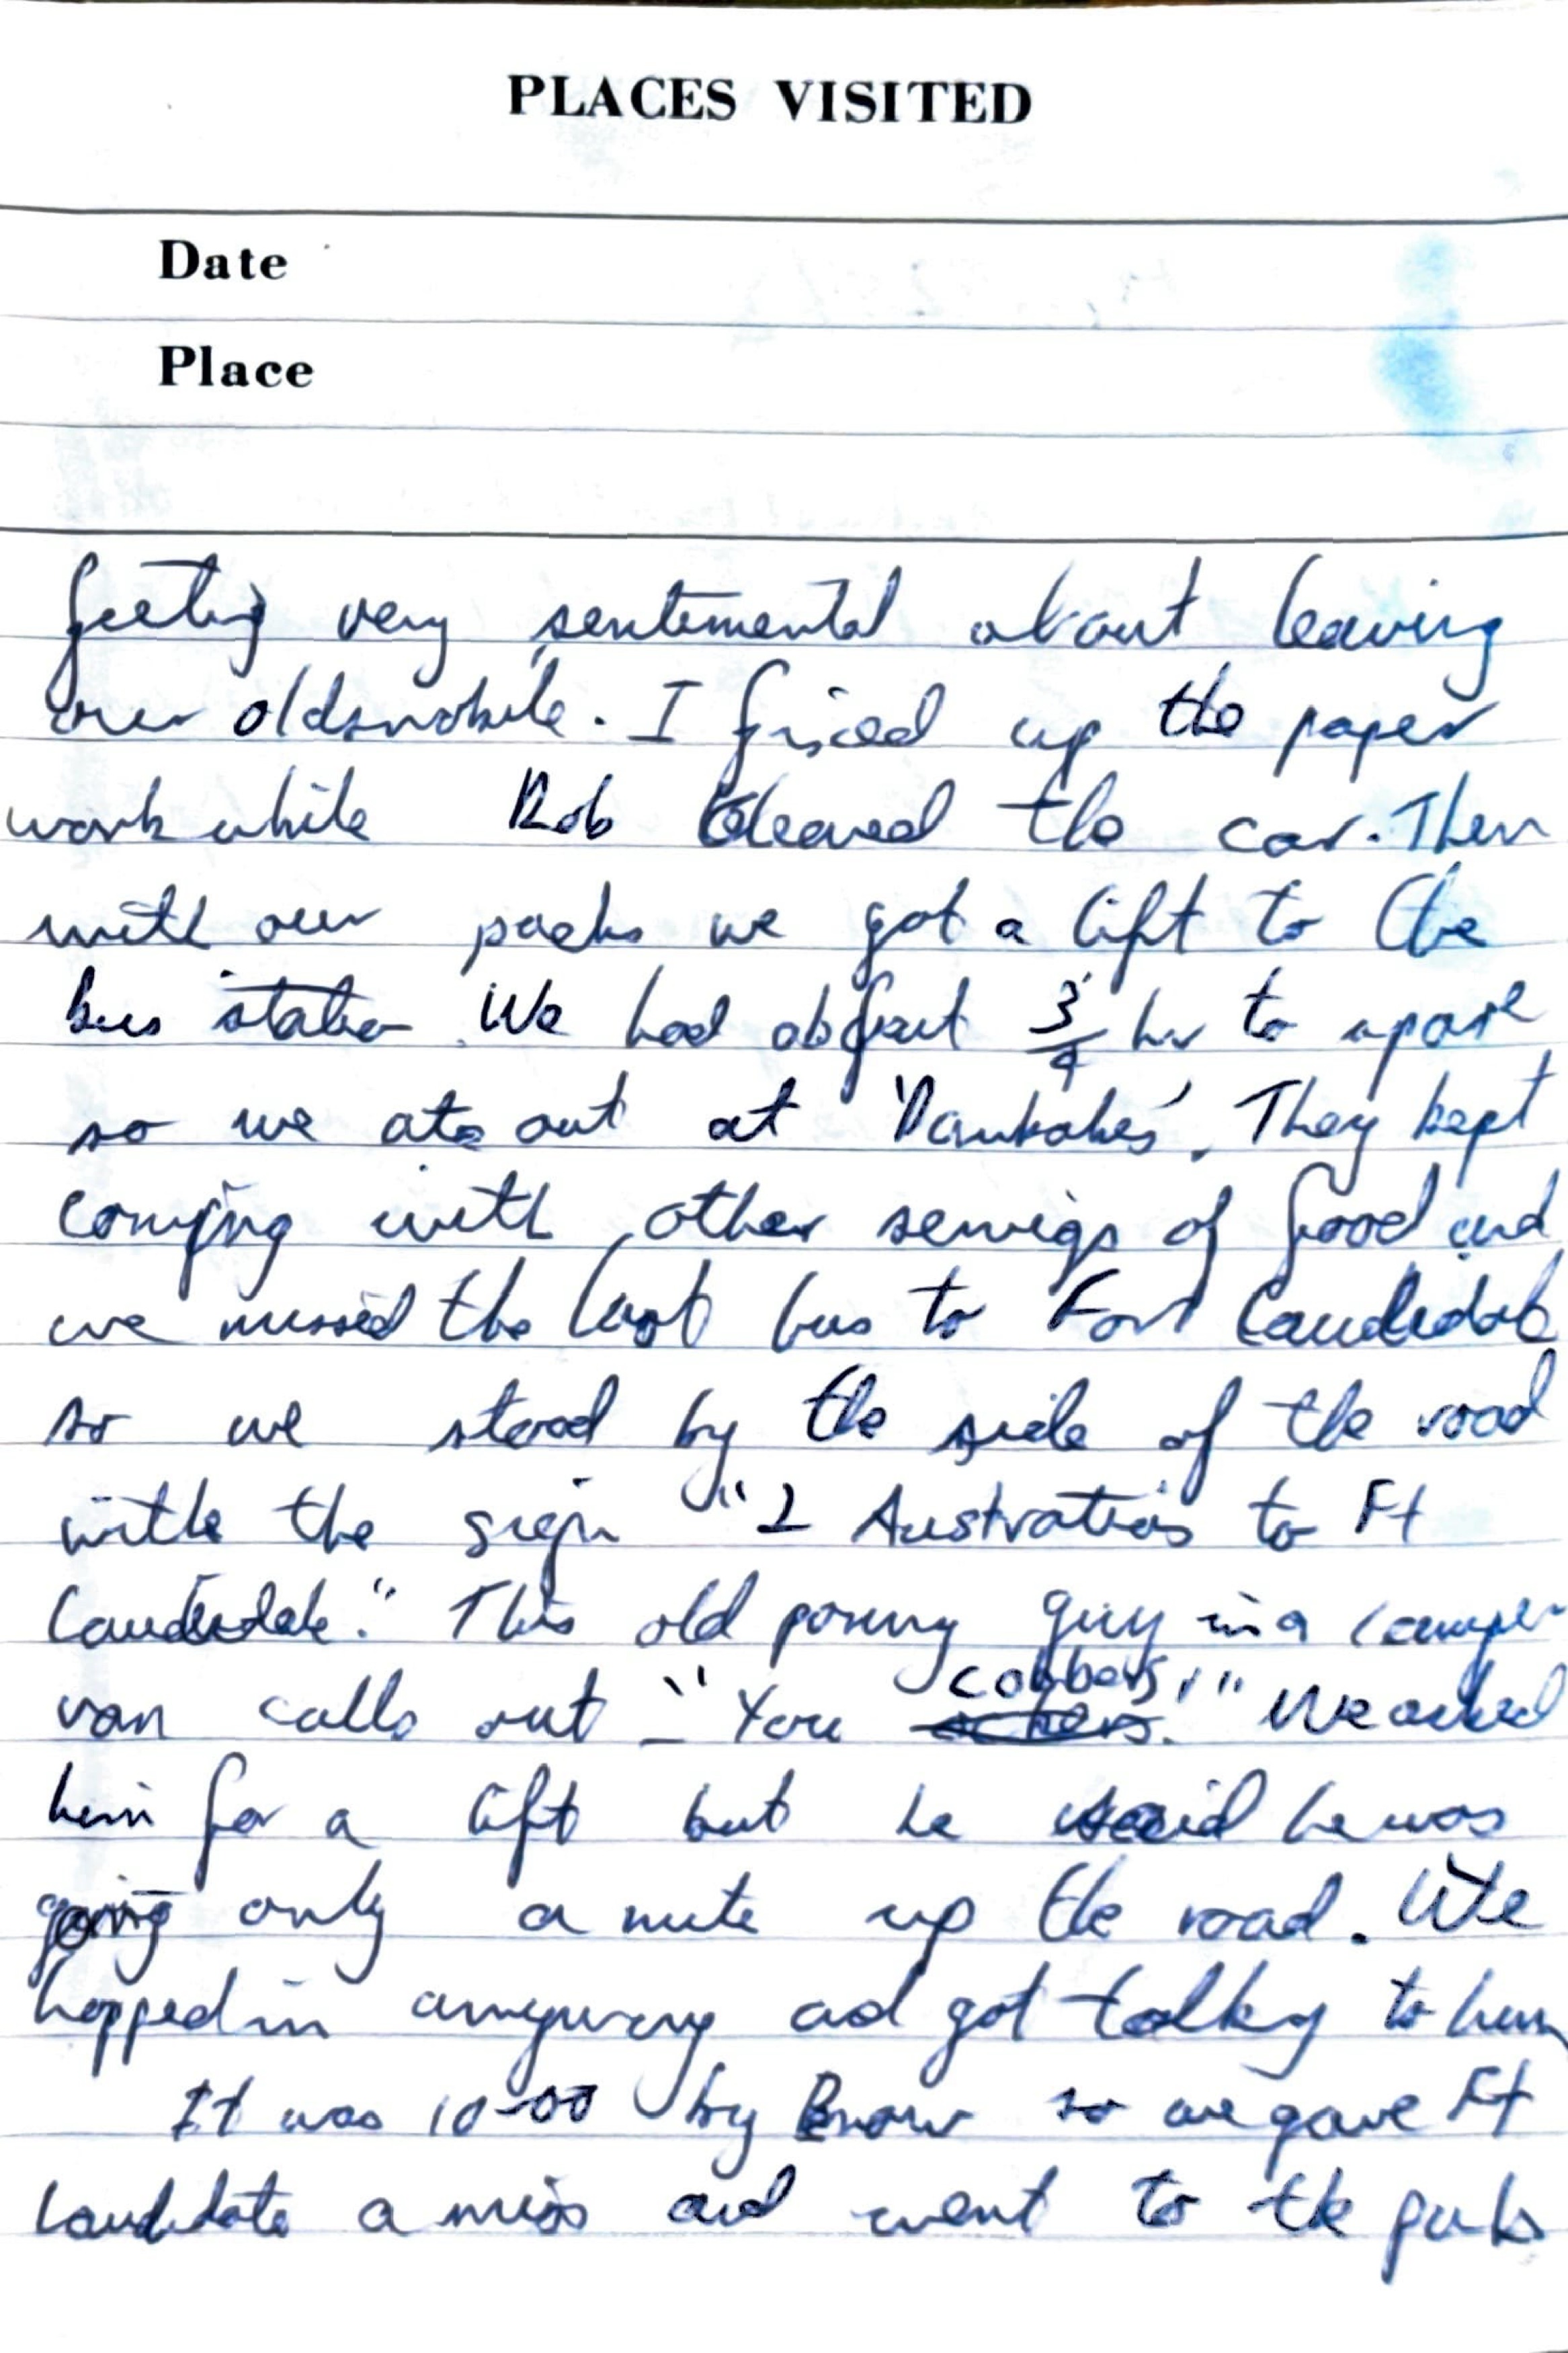 PLACES VISITED
Date
Place
feeling very sentimental about leaving
our oldsmobile. I fixed up the paper
work while Rob cleaned the car. Then
with our packs we got a lift to the
bus station We had about 3/4 hr to spare
so we ate out at. They kept
coming with other servings of food and
we missed the last bus to Fort Lauderdale
so we stood by the side of the road
with the sign "2 Australians to Ft
Lauderdale." This old guy in a camper
van calls out - "You cobbers!" We asked
him for a lift but he said he was
going only a mile up the road. We
hopped in anyway and got talking to him
It was 10-00 by now so we gave Ft
Lauderdale a miss and went to the pub